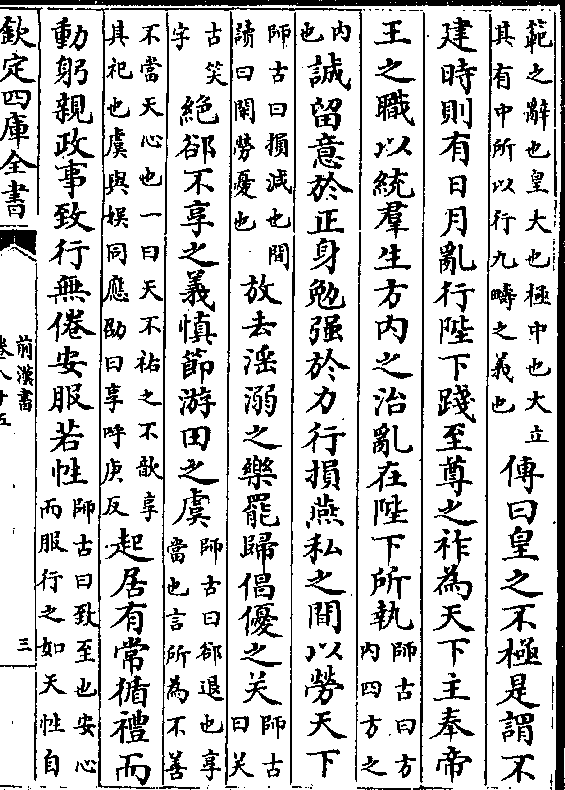 範之辭也皇大也極中也大立
其有中所以行九疇之義也
傳曰皇之不極是謂不
建時則有日月亂行陛下踐至尊之祚為天下主奉帝
王之職以統羣生方内之治亂在陛下所執
師古曰方
内四方之
内
也
誠留意於正身勉强於力行損燕私之閒以勞天下
師古曰損減也閒
讀曰閑勞憂也
放去淫溺之樂罷歸倡優之关
師古
曰关
古笑
字
絕郤不享之義慎節游田之虞
師古曰郤退也享
當也言所為不善
不當天心也一曰天不祐之不歆享
其祀也虞與娱同應劭曰享呼庚反
起居有常循禮而
動躬親政事致行無倦安服若性
師古曰致至也安心
而服行之如天性自
欽定四庫全書
前漢書
卷八十五
三